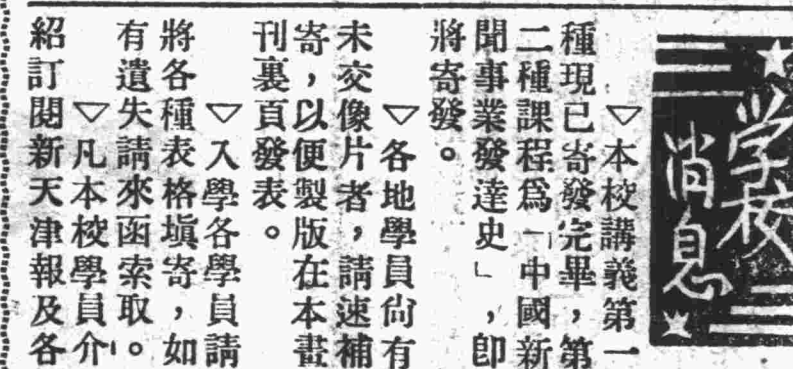 学校
消息
▽本校講義第一
種現已寄發完畢，第
二種課程爲「中國新
聞事業發達史」，卽
將寄發。
▽各地學員尙有
未交像片者，請速補
寄，以便製版在本畫
刊裏頁發表。
▽入學各學員請
將各種表格填寄，如
有遺失請來函索取。
▽凡本校學員介
紹訂閱新天津報及各